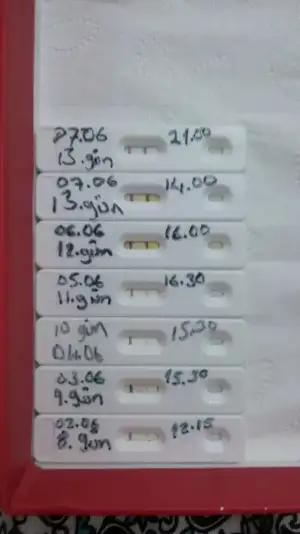 07.06 21.00
13.gün
07.06 14.00
13.gün
06.06 16.00
12.gün
05.06 16.30
11.gün
10 gün 15.30
04.06
03.06 15.30
9.gün
02.06 12.15
8.gün